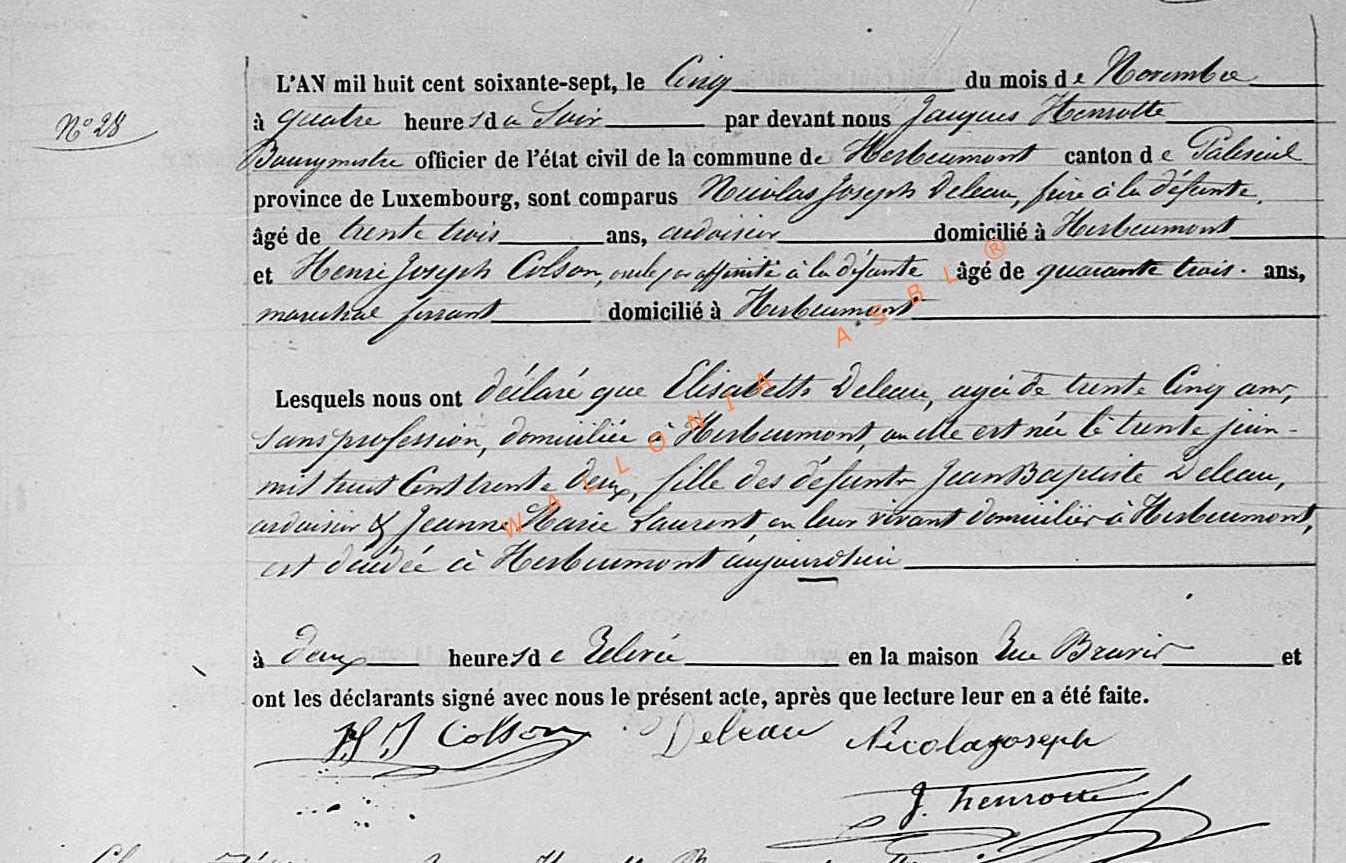 L'AN mil huit cent soixante-sept, le Cinq du mois de Novembre
N° 28
à quatre heures du Soir par devant nous Jacques Henrotte
Bourgmestre officier de l'état civil de la commune de Herbeumont canton de Paliseul
province de Luxembourg, sont comparus Nicolas Joseph Deleau, frère à la défunte,
âgé de trente trois ans, ardoisier domicilié à Herbeumont
et Henri Joseph Colson, oncle par affinité à la défunte âgé de quarante trois ans,
marechal ferrant domicilié à Herbeumont
Lesquels nous ont déclaré que Elisabeth Deleau, agée de trente Cinq ans,
sans profession, domiciliée à Herbeumont, ou elle est née le trente juin
mil huit Cent trente deux, fille des défunts Jean Baptiste Deleau,
ardoisier & Jeanne Marie Laurent, en leur vivant domiciliés à Herbeumont,
est décédée à Herbeumont aujourd'hui
à deux heures de Relevée en la maison Rue et
ont les déclarants signé avec nous le présent acte, après que lecture leur en a été faite.
H J Colson Deleau Nicolas joseph
J. henrotte
WALLONIA ASBL ®